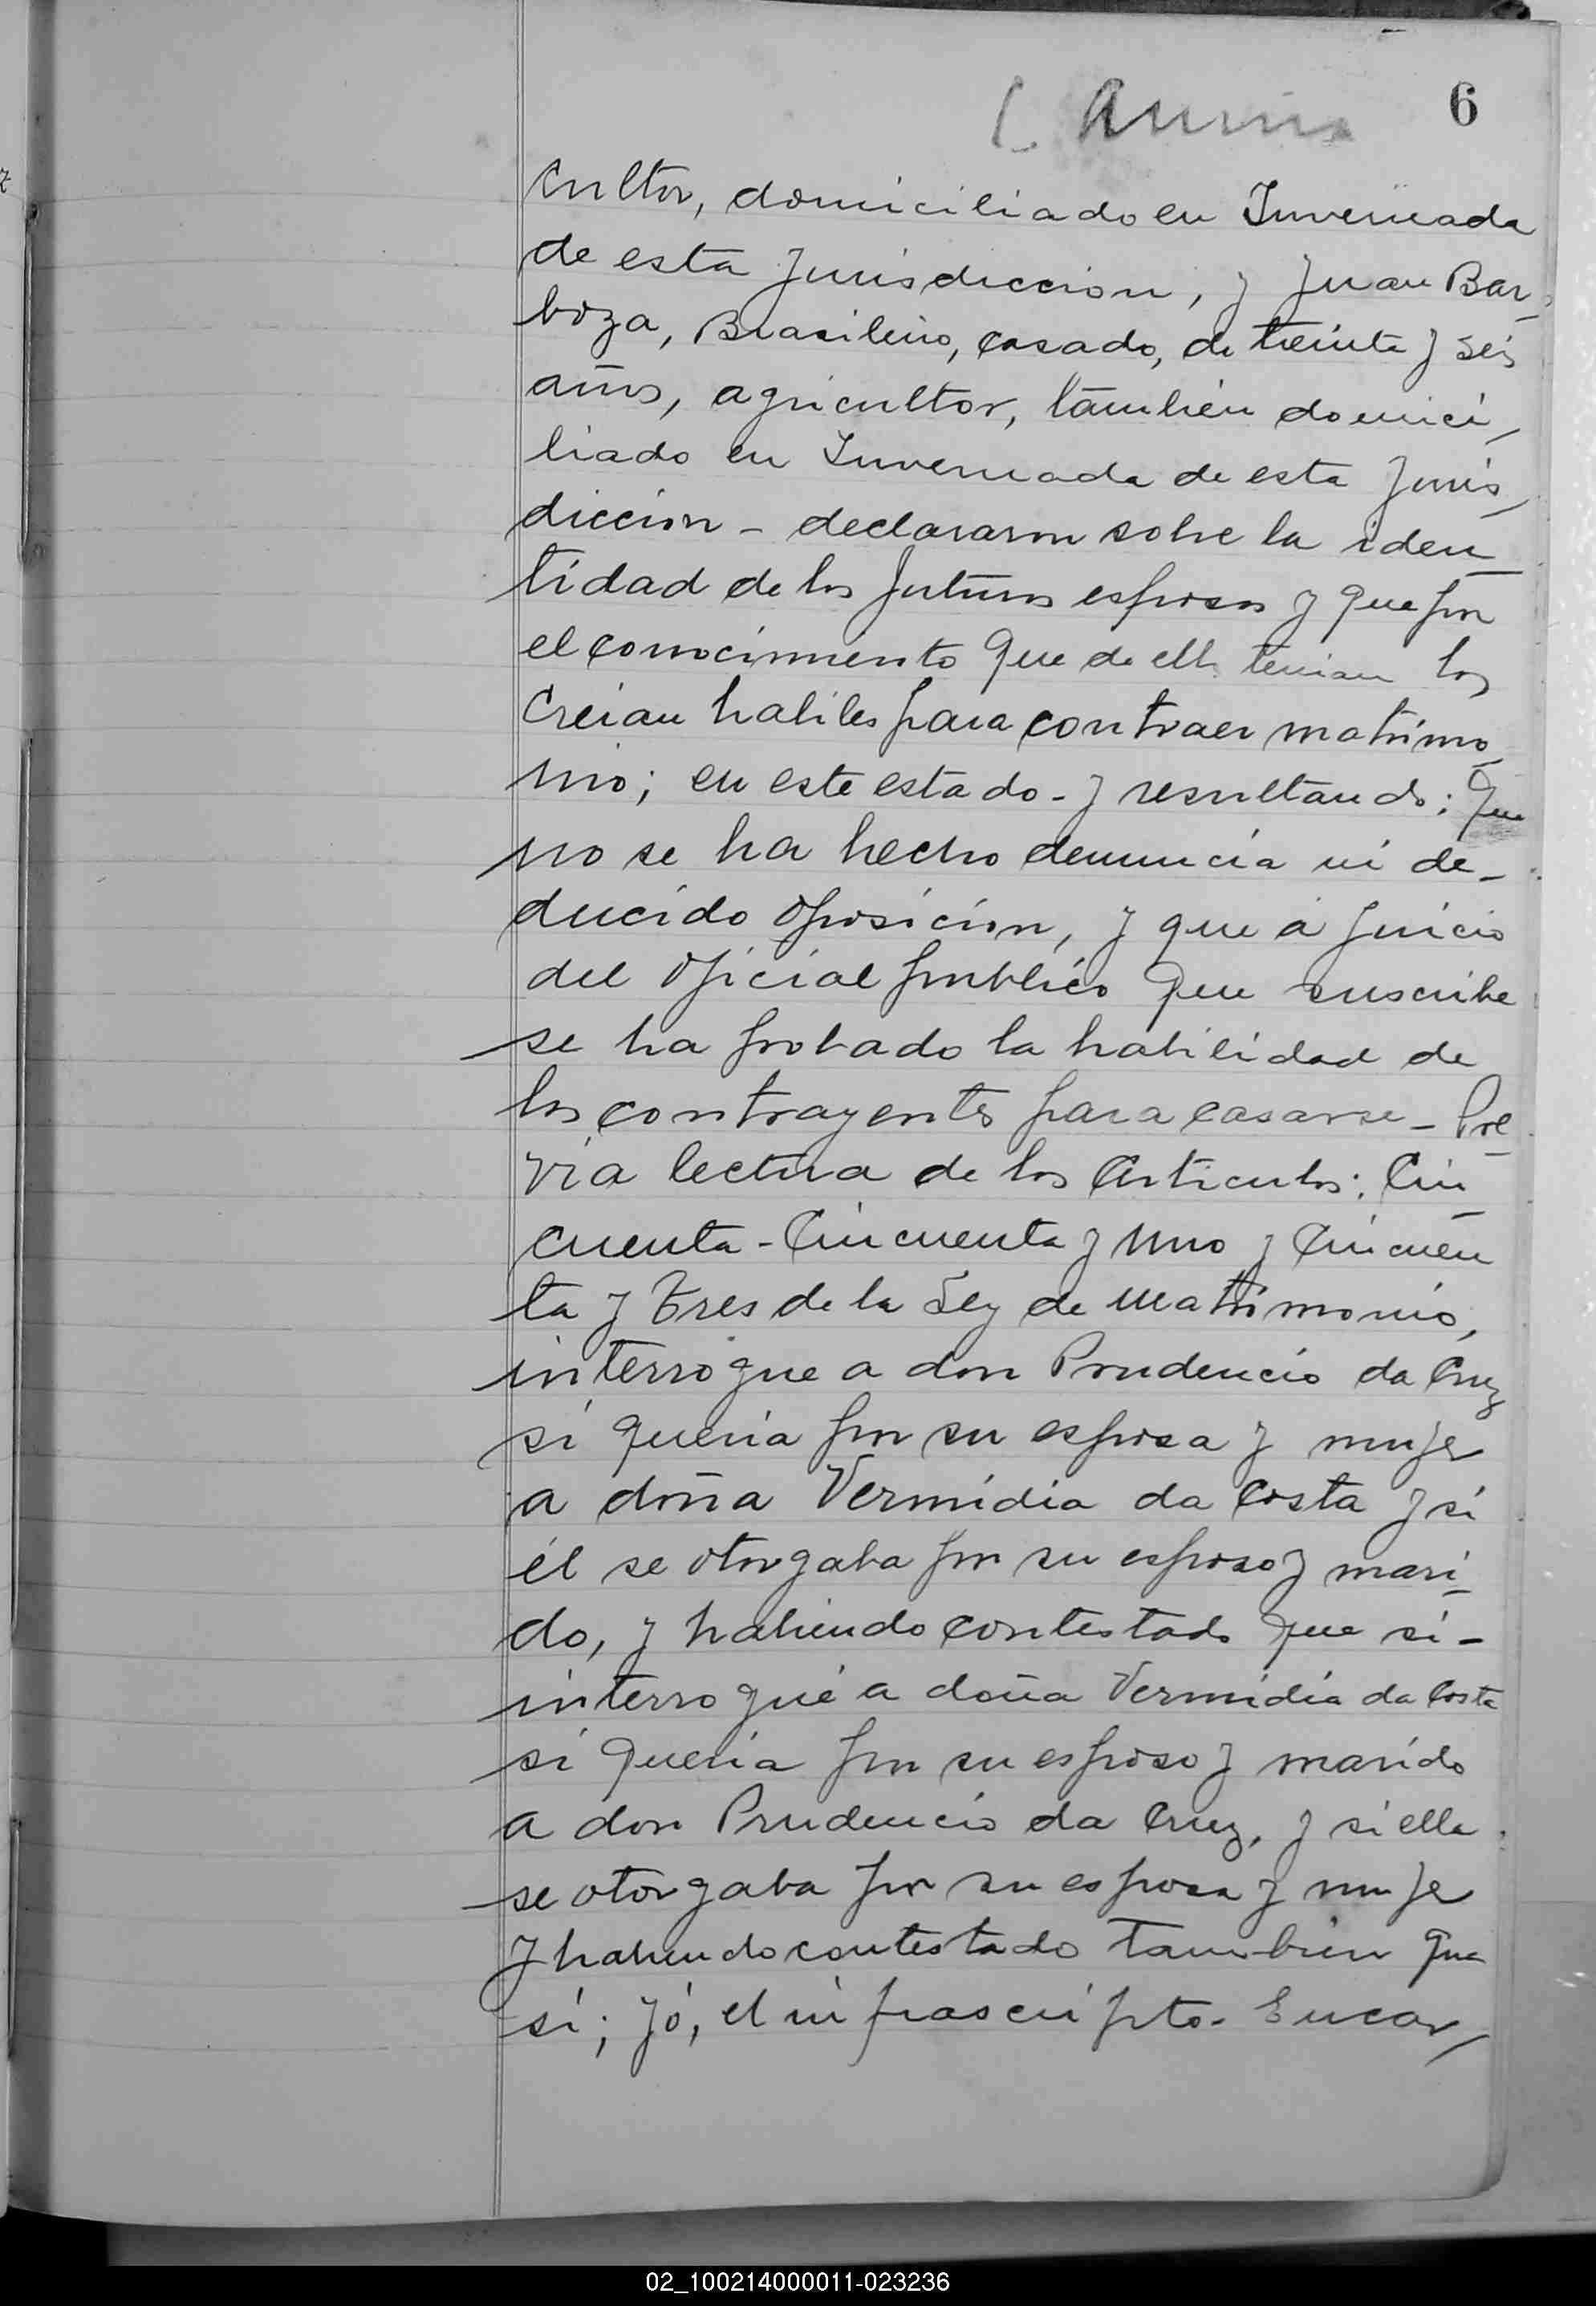 6
cultor, domiciliado en Invernada
de esta Jurisdiccion, y Juan Bar-
boza, Brasilero, casado, de treinta y seis
años, agricultor, también domici-
liado en Invernada de esta Juris-
diccion - declararon sobre la iden-
tidad de los futuros esposos y que por
el conocimiento que de ellos tenian los
creian habiles para contraer matrimo-
nio; en este estado - y resultando: Que
no se ha hecho denuncia ni de-
ducido oposicion, y que á juicio
del oficial publico que suscribe
se ha probado la habilidad de
los contrayentes para casarse - Pre-
via lectura de los Articulos: Cin-
cuenta - Cincuenta y uno y Cincuen-
ta y Tres de la Ley de Matrimonio,
interrogue a don Prudencio da Cruz
si queria por su esposa y mujer
a doña Vermidia da Costa y si
él se otorgaba por su esposo y mari-
do, y habiendo contestado que si -
interrogué a doña Vermidia da Costa
si queria por su esposo y marido
a don Prudencio da Cruz, y si ella
se otorgaba por su esposa y mujer
y habiendo contestado tambien que
si; yó, el infrascripto - Encar-
02_100214000011-023236